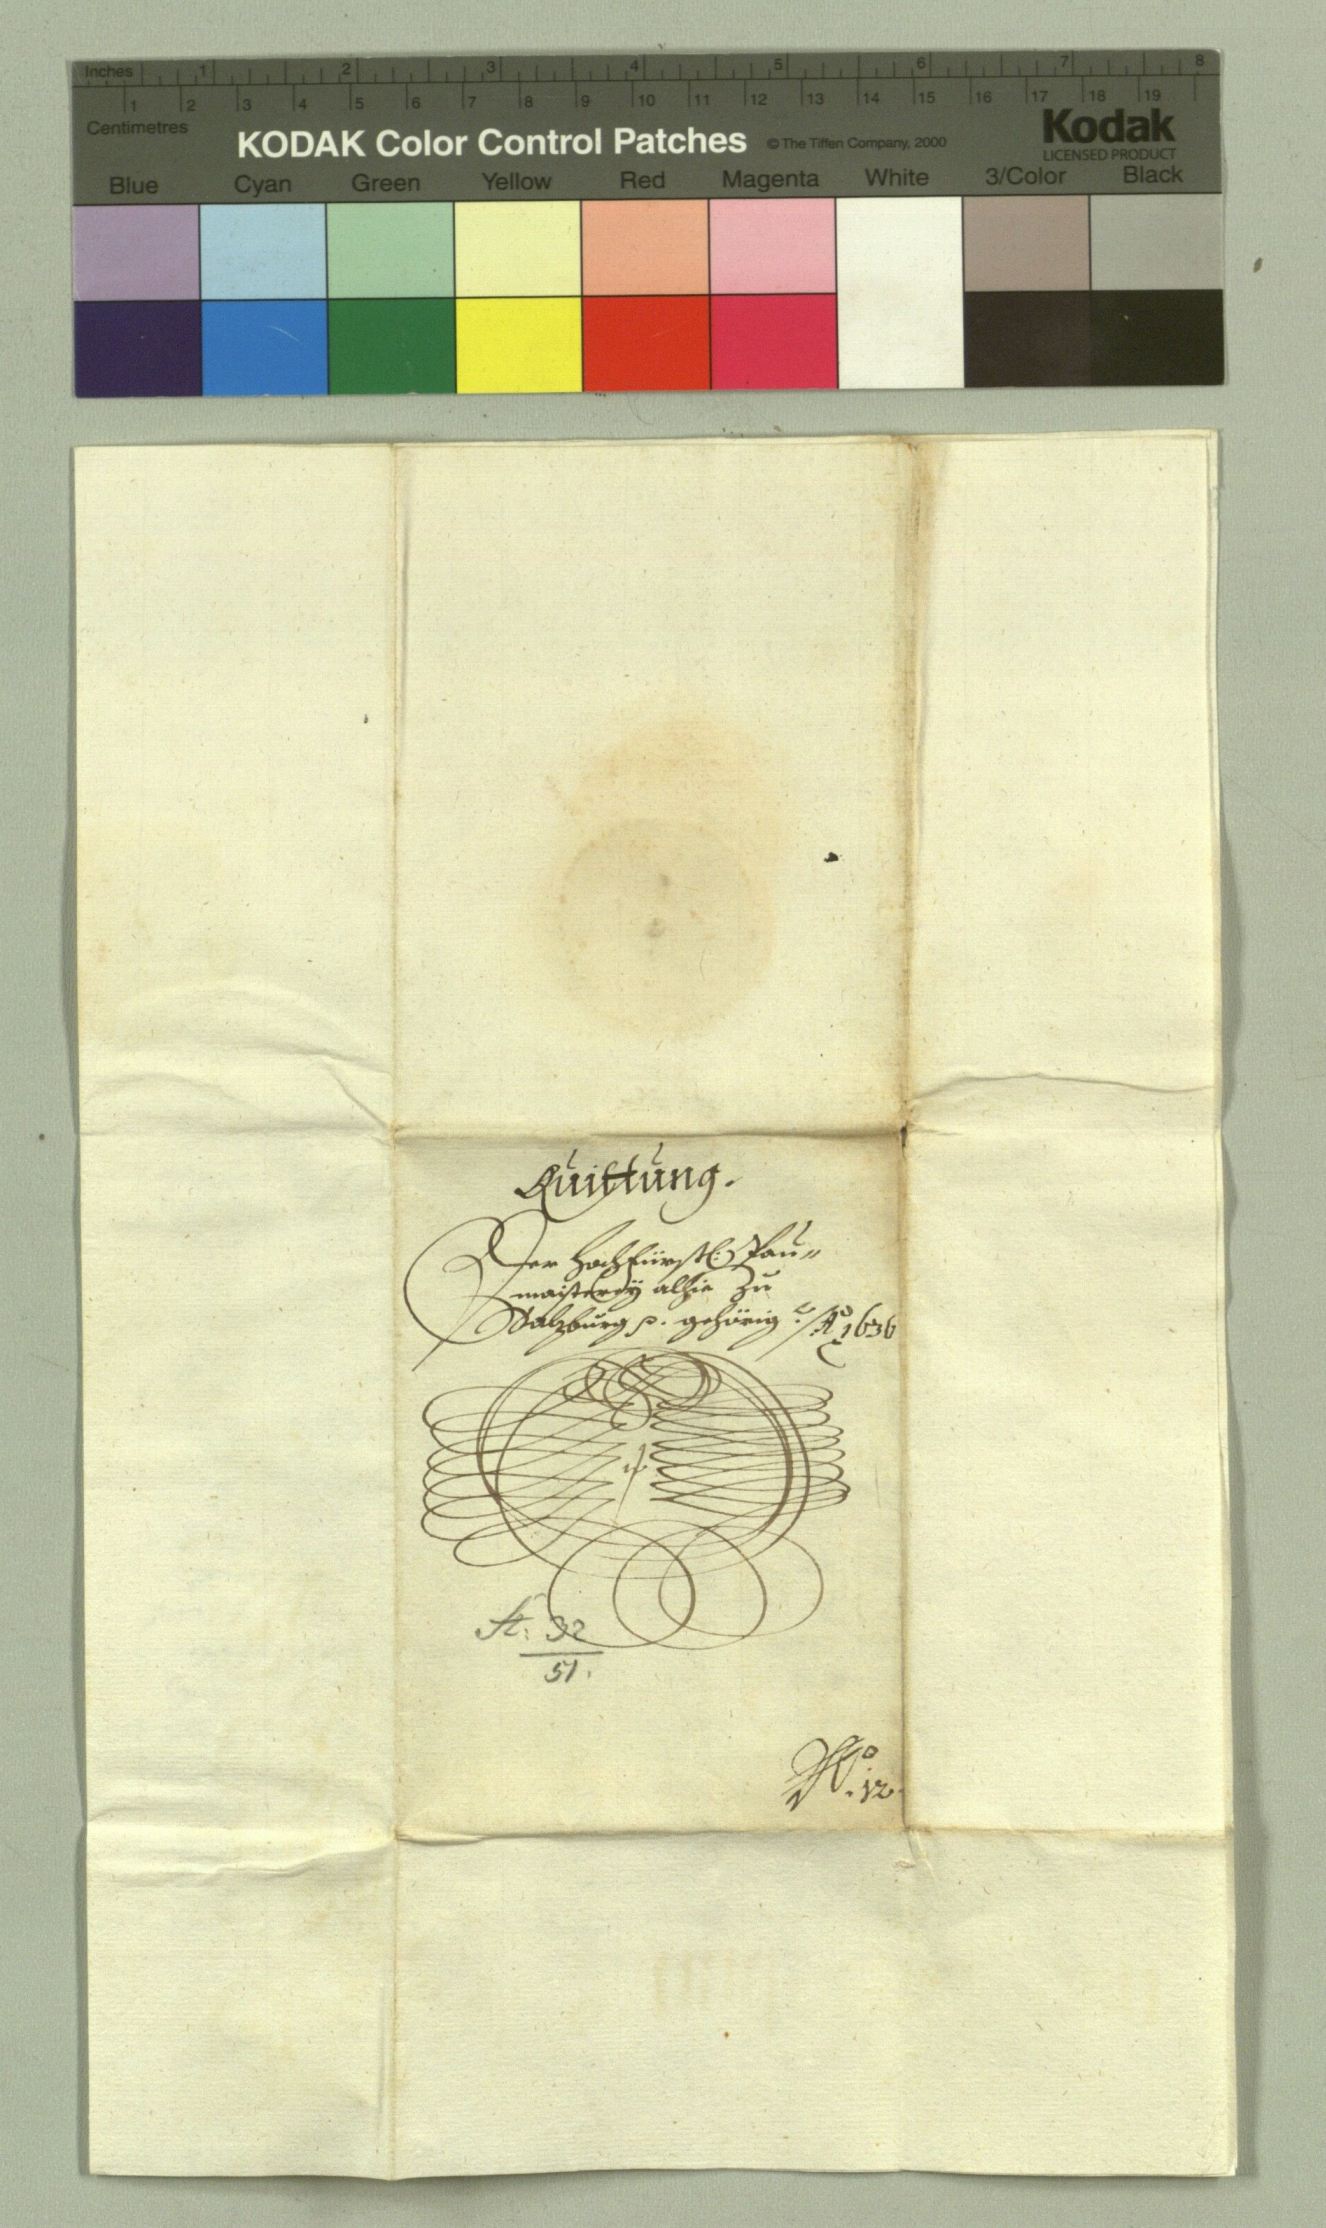 Inches 1 2 3 4 5 6 7 8
1 2 3 4 5 6 7 8 9 10 11 12 13 14 15 16 17 18 19
Centimetres
KODAK Color Control Patches © The Tiffen Company, 2000 Kodak
LICENSED PRODUCT
Blue Cyan Green Yellow Red Magenta White 3/Color Black
Quittung.
Der Hochfürstl: Pau„
maisterey alhie zu
Salzburg p. gehörig Aº 1636
32
51.
Nº. 12.